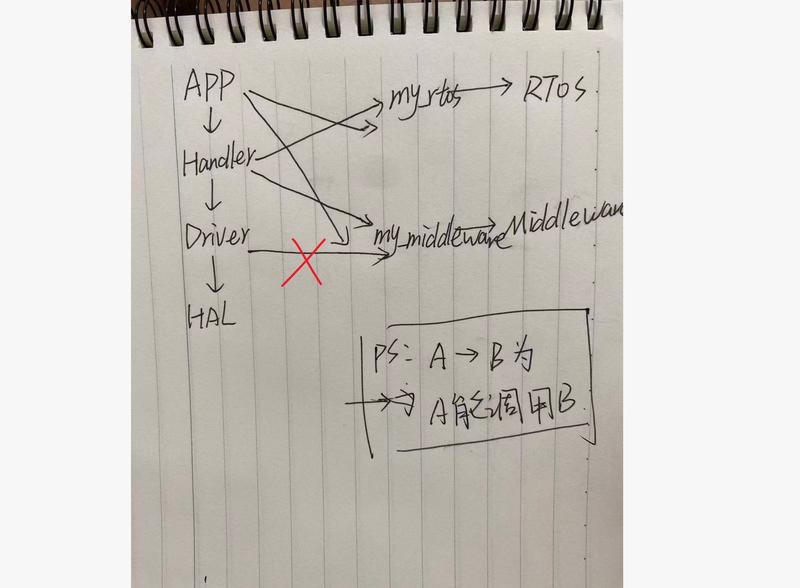 APP
my_rtos → RTOS
Handler
Driver
my_middleware → Middleware
HAL
PS: A → B 为
A能调用B